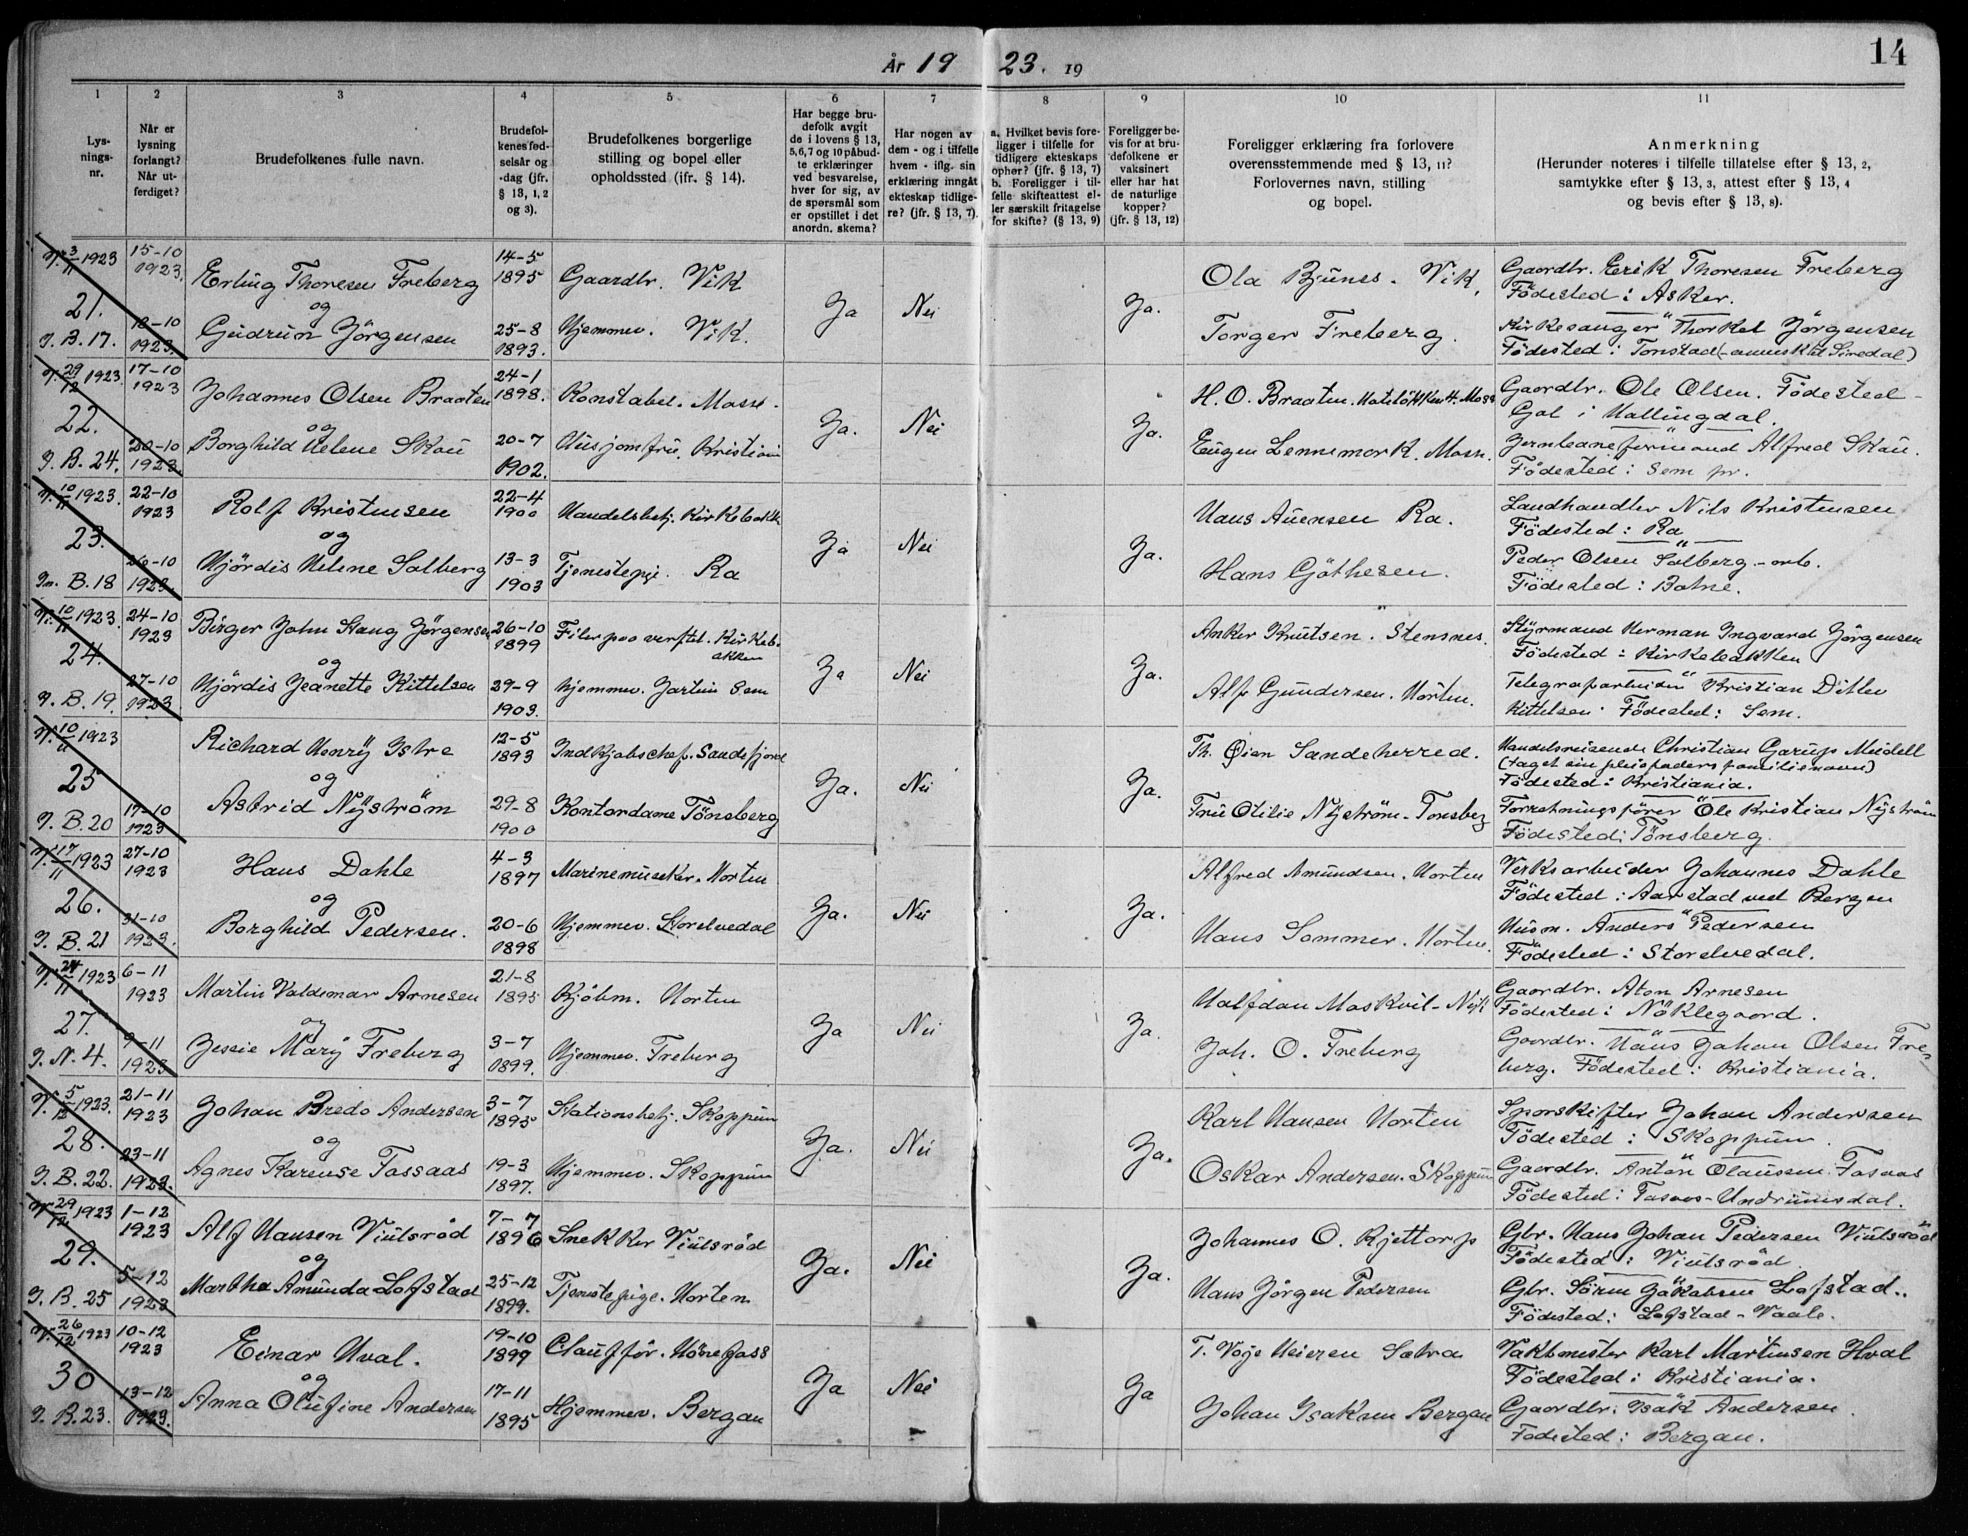 År 19 23. 19
14
1 2 3 4 5 6 7 8 9 10 11
Lys-
nings-
nr.
Når er
lysning
forlangt?
Når ut-
ferdiget?
Brudefolkenes fulle navn.
Brudefol-
kenes fød-
selsår og
-dag (jfr.
§ 13, 1, 2
og 3).
Brudefolkenes borgerlige
stilling og bopel eller
opholdssted (jfr. § 14).
Har begge bru-
defolk avgit
de i lovens § 13,
5, 6, 7 og 10 påbud-
te erklæringer
ved besvarelse,
hver for sig, av
de spørsmål som
er opstillet i det
anordn. skema?
Har nogen av
dem - og i tilfelle
hvem - iflg. sin
erklæring inngåt
ekteskap tidlige-
re? (jfr. § 13, 7).
a. Hvilket bevis fore-
ligger i tilfelle for
tidligere ekteskaps
ophør? (jfr. § 13, 7)
b. Foreligger i til-
felle skifteattest el-
ler særskilt fritagelse
for skifte? (§ 13, 9)
Foreligger be-
vis for at bru-
defolkene er
vaksinert
eller har hat
de naturlige
kopper?
(jfr. § 13, 12)
Foreligger erklæring fra forlovere
overensstemmende med § 13, 11?
Forlovernes navn, stilling
og bopel.
Anmerkning
(Herunder noteres i tilfelle tillatelse efter § 13, 2,
samtykke efter § 13, 3, attest efter § 13, 4
og bevis efter § 13, 8).
V. 3/11 1923 15-10 1923. Erling Thoresen Freberg 14-5 1895 Gaardbr. Vik Ola Bjunes. Vik, Gaardbr. Erik Thoresen Freberg
Födested: Asker.
21. og Ja Nei Ja.
J. B. 17. 18-10 1923. Gudrun Jörgensen 25-8 1893. Hjemmev. Vik. Torger Freberg. Kirkesanger Thorkel Jörgensen
Födested: Tonstad (- anneks til Siredal)
V. 29/12 1923. 17-10 1923 Johannes Olsen Braaten 24-1 1898. Konstabel. Moss. H. O. Braaten. Moss Gaardbr. Ole Olsen. Födested -
Gol i Hallingdal.
22. og Ja. Nei Ja.
J. B. 24. 20-10 1923. Borghild Helene Skau 20-7 1902. Husjomfru. Kristiania Eugen Lennemork. Moss. Jernbaneformand Alfred Skau.
Födested: Sem pr.
V. 10/11 1923. 22-10 1923 Rolf Kristensen 22-4 1900 Handelsbetj. Kirkebakk. Hans Auensen Ra. Landhandler Nils Kristensen
Födested: Ra
23. og Ja Nei Ja.
Jm. B. 18 26-10 1923 Hjördis Helene Solberg 13-3 1903 Tjenestepige. Ra Hans Göthesen. Peder Olsen Solberg - arb.
Födested: Botne.
V. 10/11 1923. 24-10 1923 Birger John Stang Jörgensen 26-10 1899 Filer paa verftet. Kirkeb-
akken Anker Knutsen. Stensnes. Styrmand Herman Ingvard Jörgensen
Födested: Kirkebakken
24. og Ja Nei Ja.
J. B. 19. 27-10 1923 Hjördis Jeanette Kittelsen 29-9 1903. Hjemmev. Jarlein Sem Alf Gundersen. Horten. Telegrafarbeider Kristian Ditlev
Kittelsen. Födested: Sem.
V. 10/11 1923 Richard Henry Istre 12-5 1893 Indkjøbschef. Sandefjord Th. Øien Sandeherred. Handelsreisende Christian Garup Meidell
(taget sin pleiefaders familienavn)
Födested: Kristiania.
25 og Ja. Nei Ja.
J. B. 20 17-10 1923 Astrid Nyström 29-8 1900 Kontordame Tönsberg Fru Otilie Nyström - Tonsberg Forretningsförer Ole Kristian Nyström
Födested: Tönsberg.
V. 17/11 1923 27-10 1923 Hans Dahle 4-3 1897 Marinemusiker. Horten Alfred Amundsen. Horten Verksarbeider Johannes Dahle
Födested: Aarstad ved Bergen
26. og Ja. Nei Ja.
J. B. 21 31-10 1923. Borghild Pedersen. 20-6 1898 Hjemmev. Storelvedal Hans Sommer. Horten. Husm. Anders Pedersen
Födested: Storelvedal.
V. 24/11 1923 6-11 1923 Martin Valdemar Arnesen 21-8 1895 Kjöbm. Horten Halfdan Maskvil - Gaardbr. Aton Arnesen
Födested: Nöklegaard.
27. og Ja Nei Ja.
J. N. 4. 9-11 1923 Jessie Mary Freberg 3-7 1899. Hjemmev. Freberg Joh. O. Freberg Gaardbr. Hans Johan Olsen Fre-
berg. Födested: Kristiania.
V. 5/12 1923. 21-11 1923 Johan Bredo Andersen 3-7 1895 Stationsbetj. Skoppum Karl Hansen Horten Sporskifter Johan Andersen
Födested: Skoppum.
28. og Ja. Nei Ja.
J. B. 22. 23-11 1923. Agnes Karense Fossaas 19-3 1897. Hjemmev. Skoppum Oskar Andersen. Skoppum Gaardbr. Anton Olaussen Fosaas
Födested: Fosaas - Undrumsdal.
V. 29/12 1923 1-12 1923 Alf Hansen Viulsröd 7-7 1896 Snekker Viulsröd Johannes O. Kjettorp Gbr. Hans Johan Pedersen Viulsröd
Födested: Viulsröd
29. og Ja. Nei Ja.
J. B. 25 5-12 1923 Martha Amunda Lofstad 25-12 1899. Tjenestepige. Horten Hans Jörgen Pedersen Gbr. Sören Jakobsen Lofstad.
Födested: Lofstad - Vaale.
V. 26/12 1923 10-12 1923 Einar Hval. 19-10 1899 Chaufför. Hönefoss T. Voje Heieren Sætra Vaktmester Karl Martinsen Hval
Födested: Kristiania.
30 og Ja Nei Ja
J. B. 23. 13-12 1923. Anna Olufine Andersen 17-11 1895 Hjemmev. Bergan Johan Isaksen Bergan Gaardbr. Isak Andersen.
Födested: Bergan.